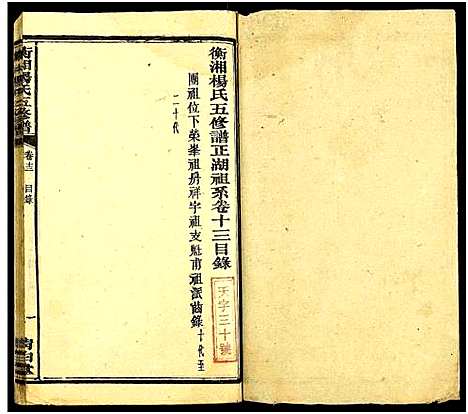 衡湘楊氏五修譜正湖祖系卷十三目錄
天字三十號
團祖位下榮峯祖丹祥字祖支魁甫祖派齒錄十代至
二十代
衡湘楊氏五修譜
卷十三 目錄
一